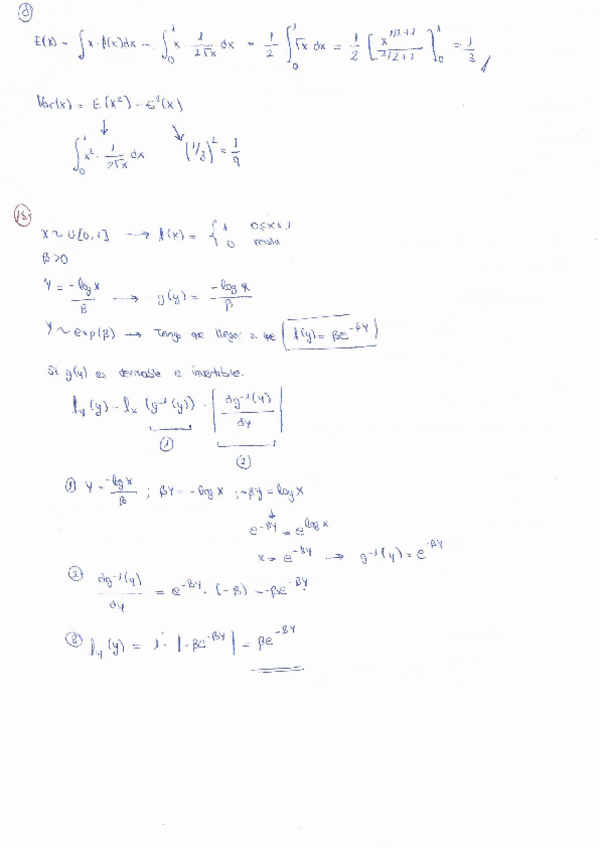 E(x) = ∫ x · f(x)dx = ∫₀¹ x · 1/(2√x) dx = 1/2 ∫₀¹ √x dx = 1/2 [x^(1/2+1)/(1/2+1)]₀¹ = 1/3
Var(x) = E(x²) - E²(x)
↓ ↘
∫₀¹ x² · 1/(2√x) dx (1/3)² = 1/9
18
X ~ U[0,1] → f(x) = { 1 0≤x≤1
0 resto
β>0
Y = -log x/β → g(y) = -log x/β
Y ~ exp(β) → Tengo que llegar a que f(y) = βe^(-βY)
Si g(y) es derivable e invertible.
f_y(y) = f_x (g⁻¹(y)) · |dg⁻¹(y)/dy|
① ②
① Y = -log x/β ; βY = -log x ; -βy = log x
↓
e^(-βY) = e^(log x)
x = e^(-βY) → g⁻¹(y) = e^(-βY)
② dg⁻¹(y)/dy = e^(-βY) · (-β) = -βe^(-βY)
③ f_y(y) = 1 · |-βe^(-βY)| = βe^(-βY)